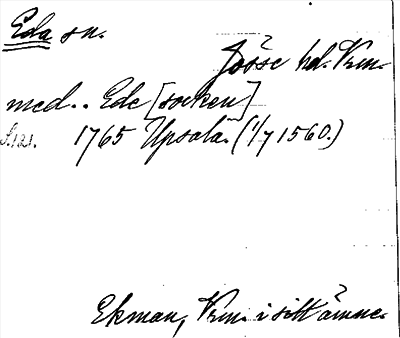 Eda sn.
Jösse hd. Vrm.
med.. Ede [socken]
S. 121. 1765 Upsala. (1/7 1560.)
Ekman, Vrm. i sitt ämne.